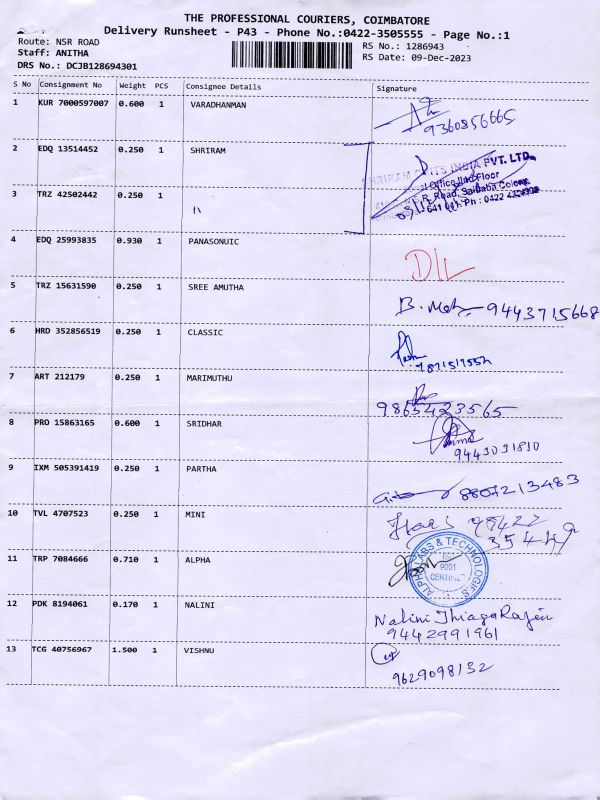 THE PROFESSIONAL COURIERS, COIMBATORE
Delivery Runsheet - P43 - Phone No.:0422-3505555 - Page No.:1
Route: NSR ROAD
Staff: ANITHA
DRS No.: DCJB128694301
RS No.: 1286943
RS Date: 09-Dec-2023
S No Consignment No Weight PCS Consignee Details Signature
1 KUR 7000597007 0.600 1 VARADHANMAN
9360856665
2 EDQ 13514452 0.250 1 SHRIRAM
INDIA PVT. LTD.
Office IInd Floor
Road, Saibaba Colony
Ph : 0422
3 TRZ 42502442 0.250 1 "
4 EDQ 25993835 0.930 1 PANASONUIC
D/L
5 TRZ 15631590 0.250 1 SREE AMUTHA
B. 9443715668
6 HRD 352856519 0.250 1 CLASSIC
7 ART 212179 0.250 1 MARIMUTHU
9865423565
8 PRO 15863165 0.600 1 SRIDHAR
9443031810
9 IXM 505391419 0.250 1 PARTHA
8807213483
10 TVL 4707523 0.250 1 MINI
98422
35449
11 TRP 7084666 0.710 1 ALPHA
ALPHA LABS & TECHNOLOGIES
ISO
9001
CERTIFIED
12 PDK 8194061 0.170 1 NALINI
Nalini ThiagaRajen
9442991961
13 TCG 40756967 1.500 1 VISHNU
9629098132